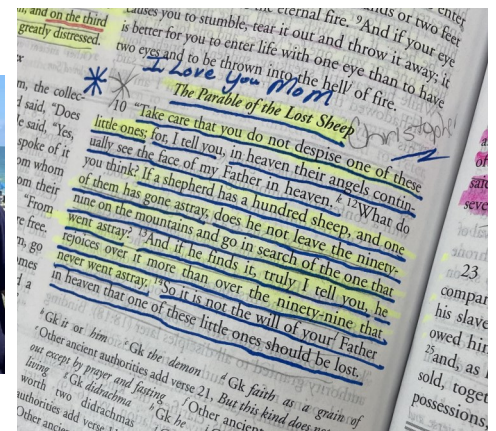 m, and on the third
greatly distressed.
m, the collec-
d said, "Does
e said, "Yes,
spoke of it
om whom
om their
"From
re free.
m, go
omes
d a
causes you to stumble, tear it out and throw it away; it
is better for you to enter life with one eye than to have
two eyes and to be thrown into the hell of fire.
I Love You Mom
The Parable of the Lost Sheep
Christopher
10 "Take care that you do not despise one of these
little ones; for, I tell you, in heaven their angels contin-
ually see the face of my Father in heaven. k 12What do
you think? If a shepherd has a hundred sheep, and one
of them has gone astray, does he not leave the ninety-
nine on the mountains and go in search of the one that
went astray? 13And if he finds it, truly I tell you, he
rejoices over it more than over the ninety-nine that
never went astray. 14So it is not the will of your Father
in heaven that one of these little ones should be lost.
Gk it or him Gk the demon d Gk faith as a grain of
Other ancient authorities add verse 21, But this kind does not
out except by prayer and fasting Other ancient
living g Gk didrachma h Gk he
worth two didrachmas
authorities add verse
Other ancient
23
compar
his slave
owed him
25 and, as
sold, toget
possessions,